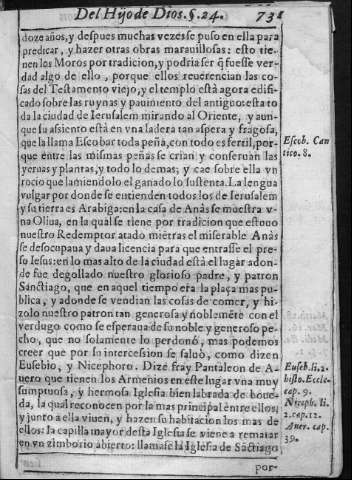 Del Hijo de Dios. §. 24. 73
doze años, y despues muchas vezes se puso en ella para
predicar, y hazer otras obras marauillosas: esto tie-
nen los Moros por tradicion, y podria ser q̃ fuesse ver-
dad algo de ello, porque ellos reuerencian las co-
sas del Testamento viejo, y el templo està agora edifi-
cado sobre las ruynas y pauimento del antiguo: està to
da la ciudad de Ierusalem mirando al Oriente, y aun-
que su asiento està en vna ladera tan aspera y fragosa,
que la llama Escobar toda peña, con todo es fertil, por-
que entre las mismas peñas se crian y conseruan las
yeruas y plantas, y todo lo demas; y cae sobre ella vn
rocio que lamiendolo el ganado lo sustenta. La lengua
vulgar por donde se entienden todos los de Ierusalem
y su tierra es Arabiga: en la casa de Anàs se muestra v
na Oliua, en la qual se tiene por tradicion que estuuo
nuestro Redemptor atado miẽtras el miserable Anàs
se desocupaua y daua licencia para que entrasse el pre-
so Iesus: en lo mas alto de la ciudad està el lugar adon-
de fue degollado nuestro glorioso padre, y patron
Sanctiago, que en aquel tiempo era la plaça mas pu
blica, y adonde se vendian las cosas de comer, y hi-
zolo nuestro patron tan generosa y noblemẽte con el
verdugo como se esperaua de su noble y generoso pe-
cho, que no solamente lo perdonò, mas podemos
creer que por su intercession se saluò, como dizen
Eusebio, y Nicephoro. Dize fray Pantaleon de A-
uero que tienen los Armenios en este lugar vna muy
sumptuosa, y hermosa Iglesia bien labrada de boue-
da, la qual reconocen por la mas principal entre ellos,
y junto a ella viuen, y hazen su habitacion los mas de
ellos: la capilla mayor desta Iglesia se viene a rematar
en vn zimborio abierto: llamase la Iglesia de Sãctiago
por-
Escob. Can
tico. 8.
Euseb. li. 2.
histo. Eccle.
cap. 9.
Niceph. li.
2. cap. 12.
Auer. cap.
39.